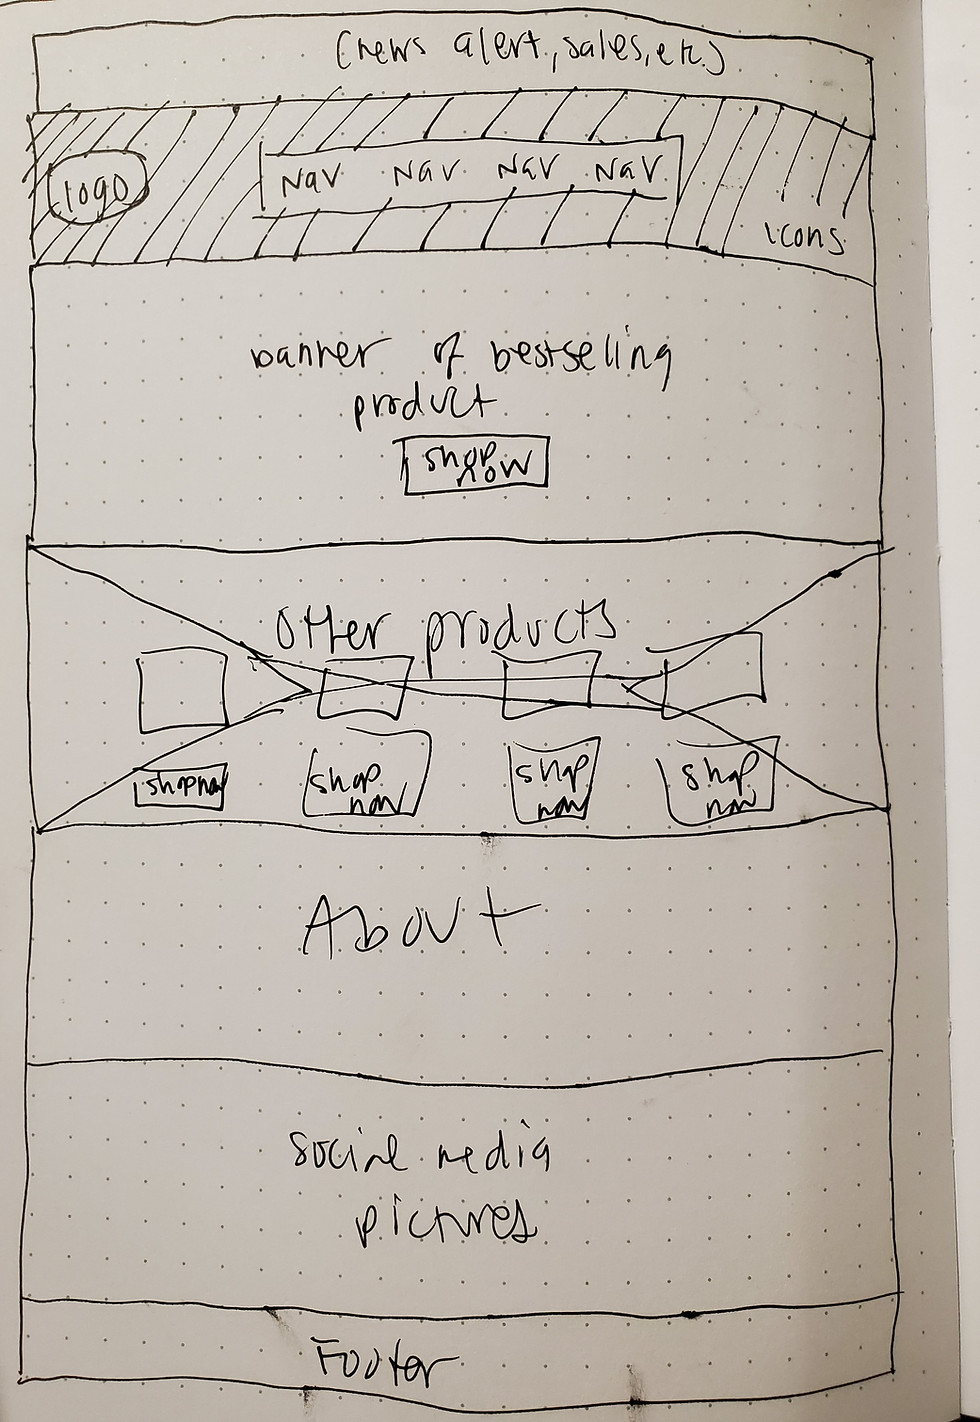 (news alert, sales, etc.)
logo
Nav Nav Nav Nav
icons
banner of bestseling
product
shop
now
Other products
shop now
shop
now
shop
now
shop
now
About
social media
pictures
Footer